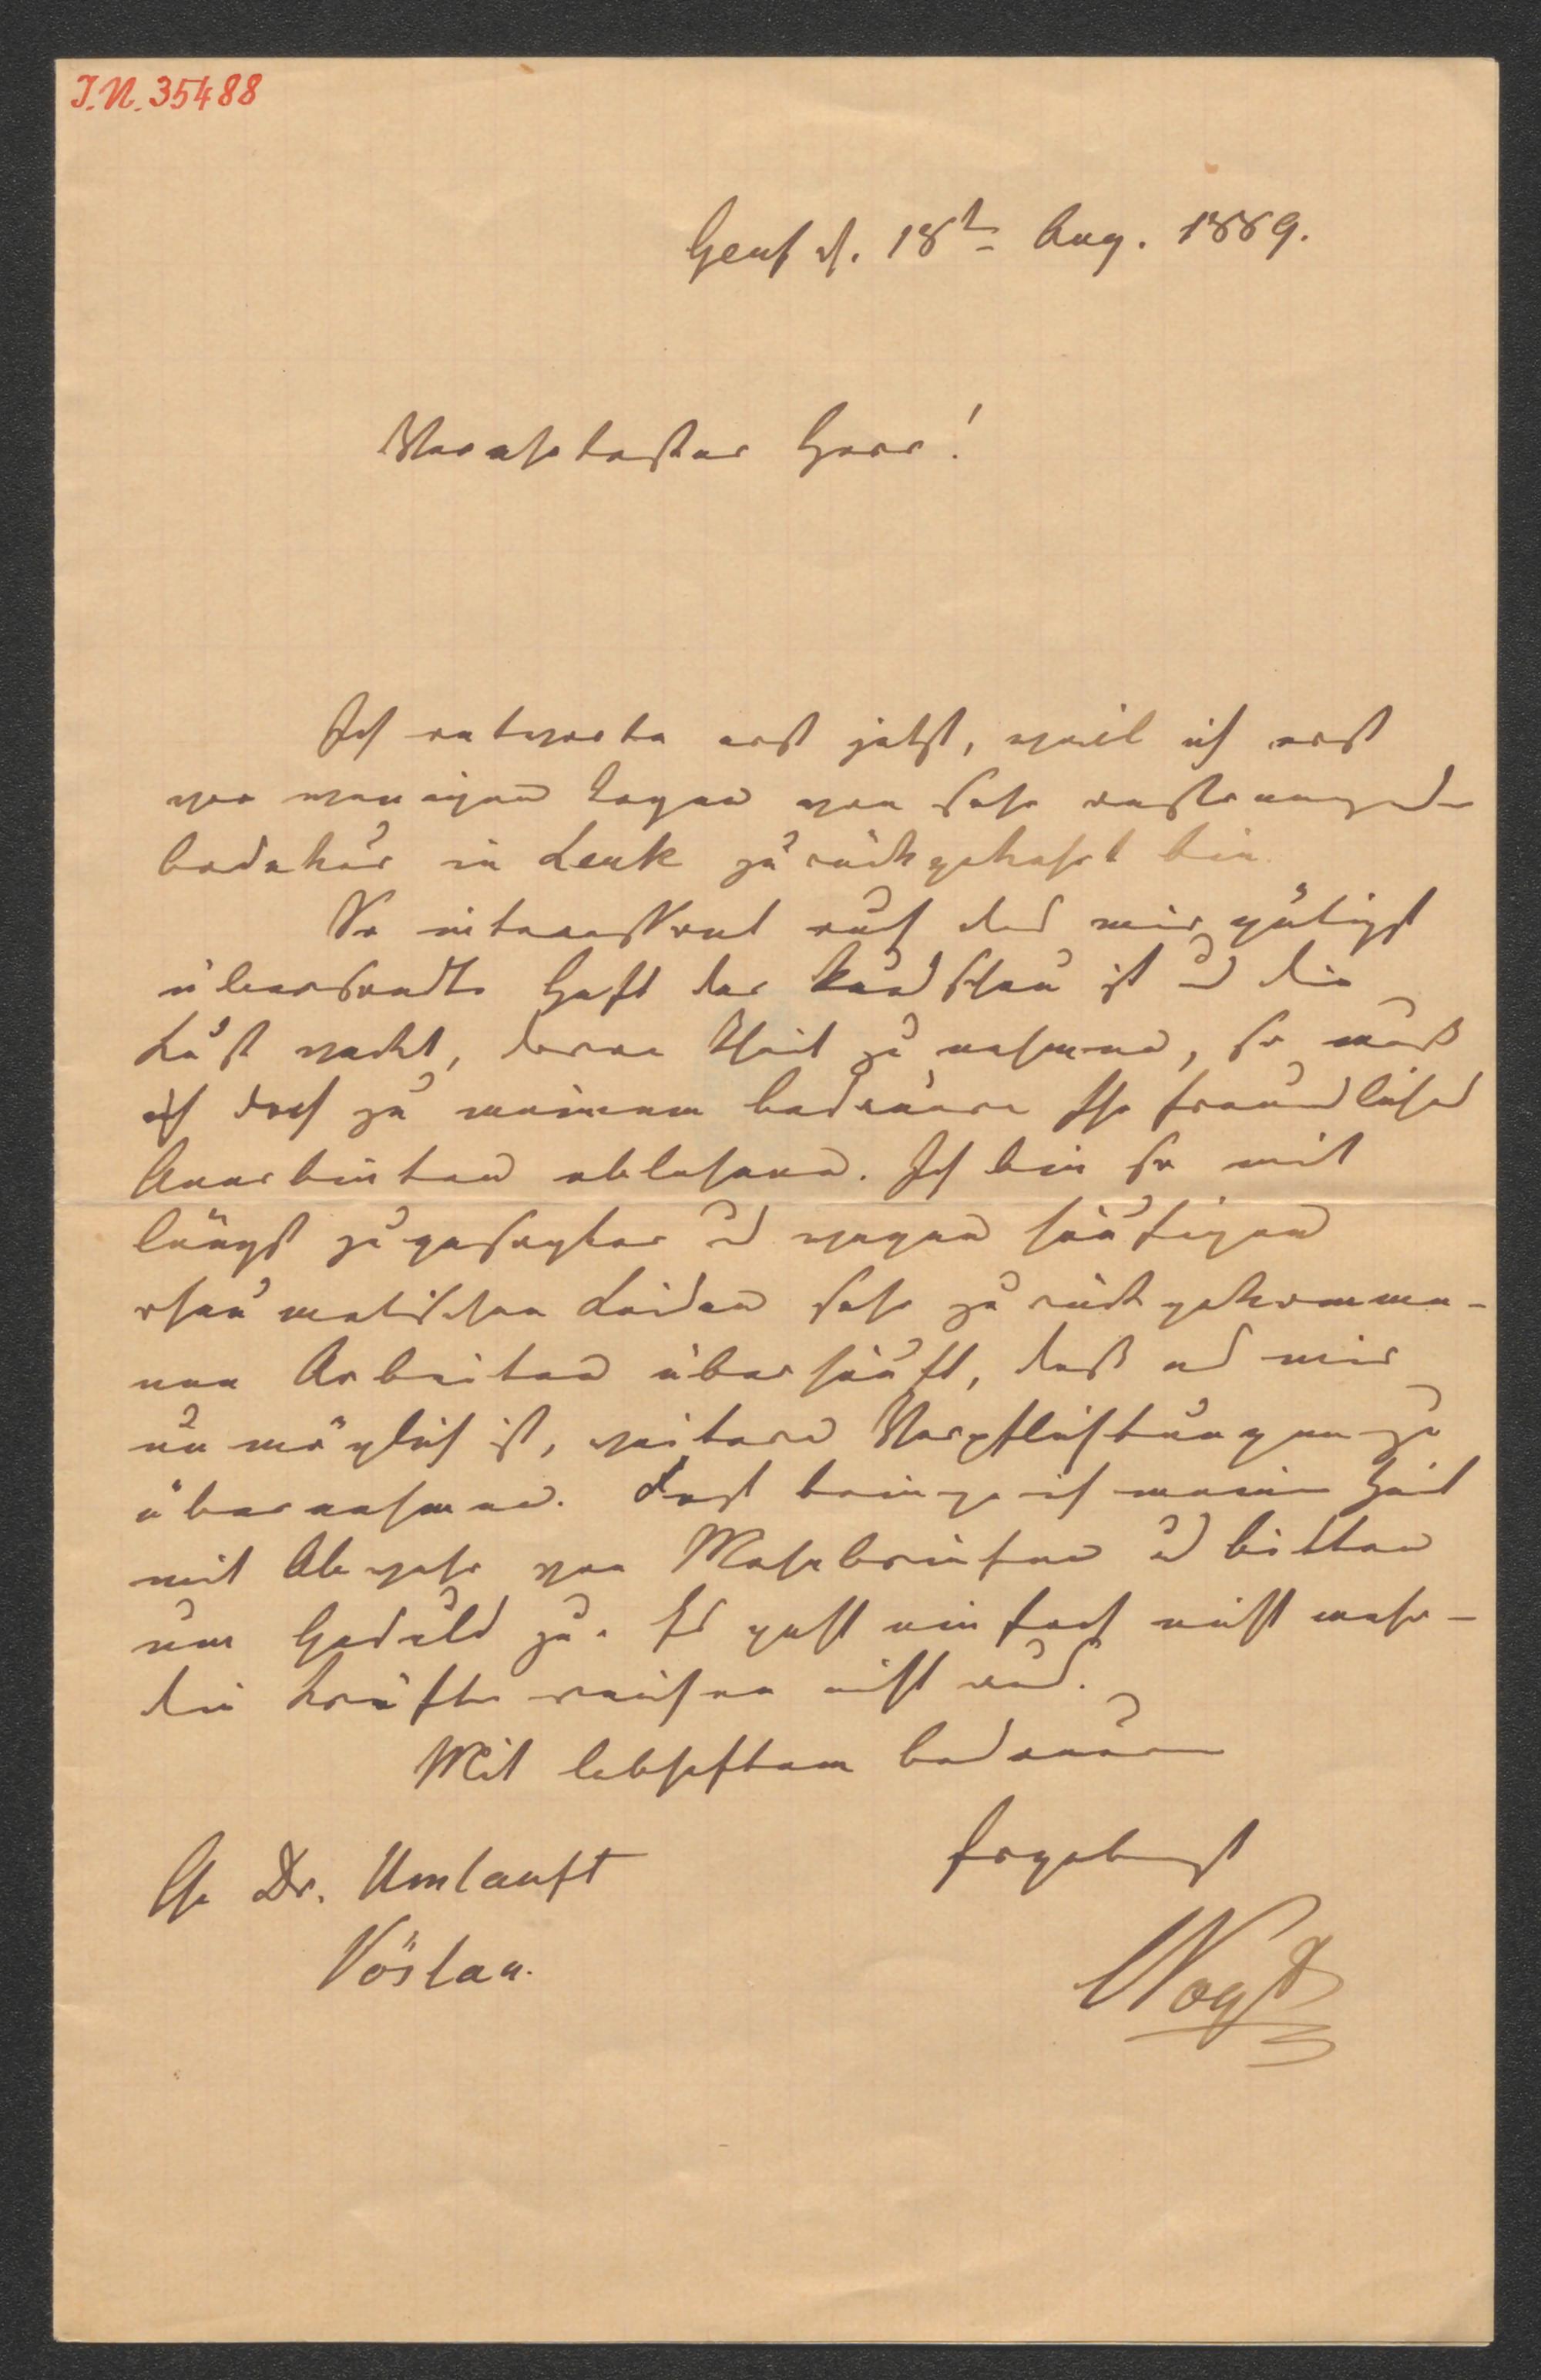 I.N. 35488
Genf d. 18t Aug. 1889.
Verehrtester Herr!
Ich antworte erst jetzt, weil ich erst
vor wenigen Tagen von sehr anstrengender
Badekur in Leuk zurückgekehrt bin.
So interessant auch das mir gütigst
übersandte Heft der Rundschau ist u die
Lust weckt, daran Theil zu nehmen, so muß
ich doch zu meinem Bedauern Ihr freundliches
Anerbieten ablehnen. Ich bin so mit
längst zugesagter u wegen häufigen
rheumatischen Leiden sehr zurückgekomme-
nen Arbeiten überhäuft, daß es mir
unmöglich ist, weitere Verpflichtungen zu
übernehmen. Fast bringe ich meine Zeit
mit Abwehr von Mahnbriefen u Bitten
um Geduld zu. Es geht einfach nicht mehr -
die Kräfte reichen nicht aus.
Mit lebhaftem Bedauern
Ergebenst
Hr Dr. Umlauft
Vöslau.
CVogt